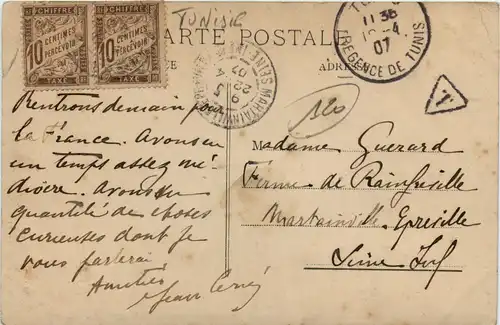 CHIFFRE
10
CENTIMES
À PERCEVOIR
TAXE
CHIFFRE
10
CENTIMES
À PERCEVOIR
TAXE
TUNISIE
CARTE POSTALE
ADRESSE
11 35
4
07
(RÉGENCE DE TUNIS)
T
MARTAINVILLE
SEINE INF
22
4
07
120
Rentrons demain pour
la France. Avons eu
un temps assez mé-
diocre. Avons vu
quantité de choses
curieuses dont je
vous parlerai
Amitiés
Madame Guerard
Ferme de Rainfreville
Martainville Epreville
Seine Inf